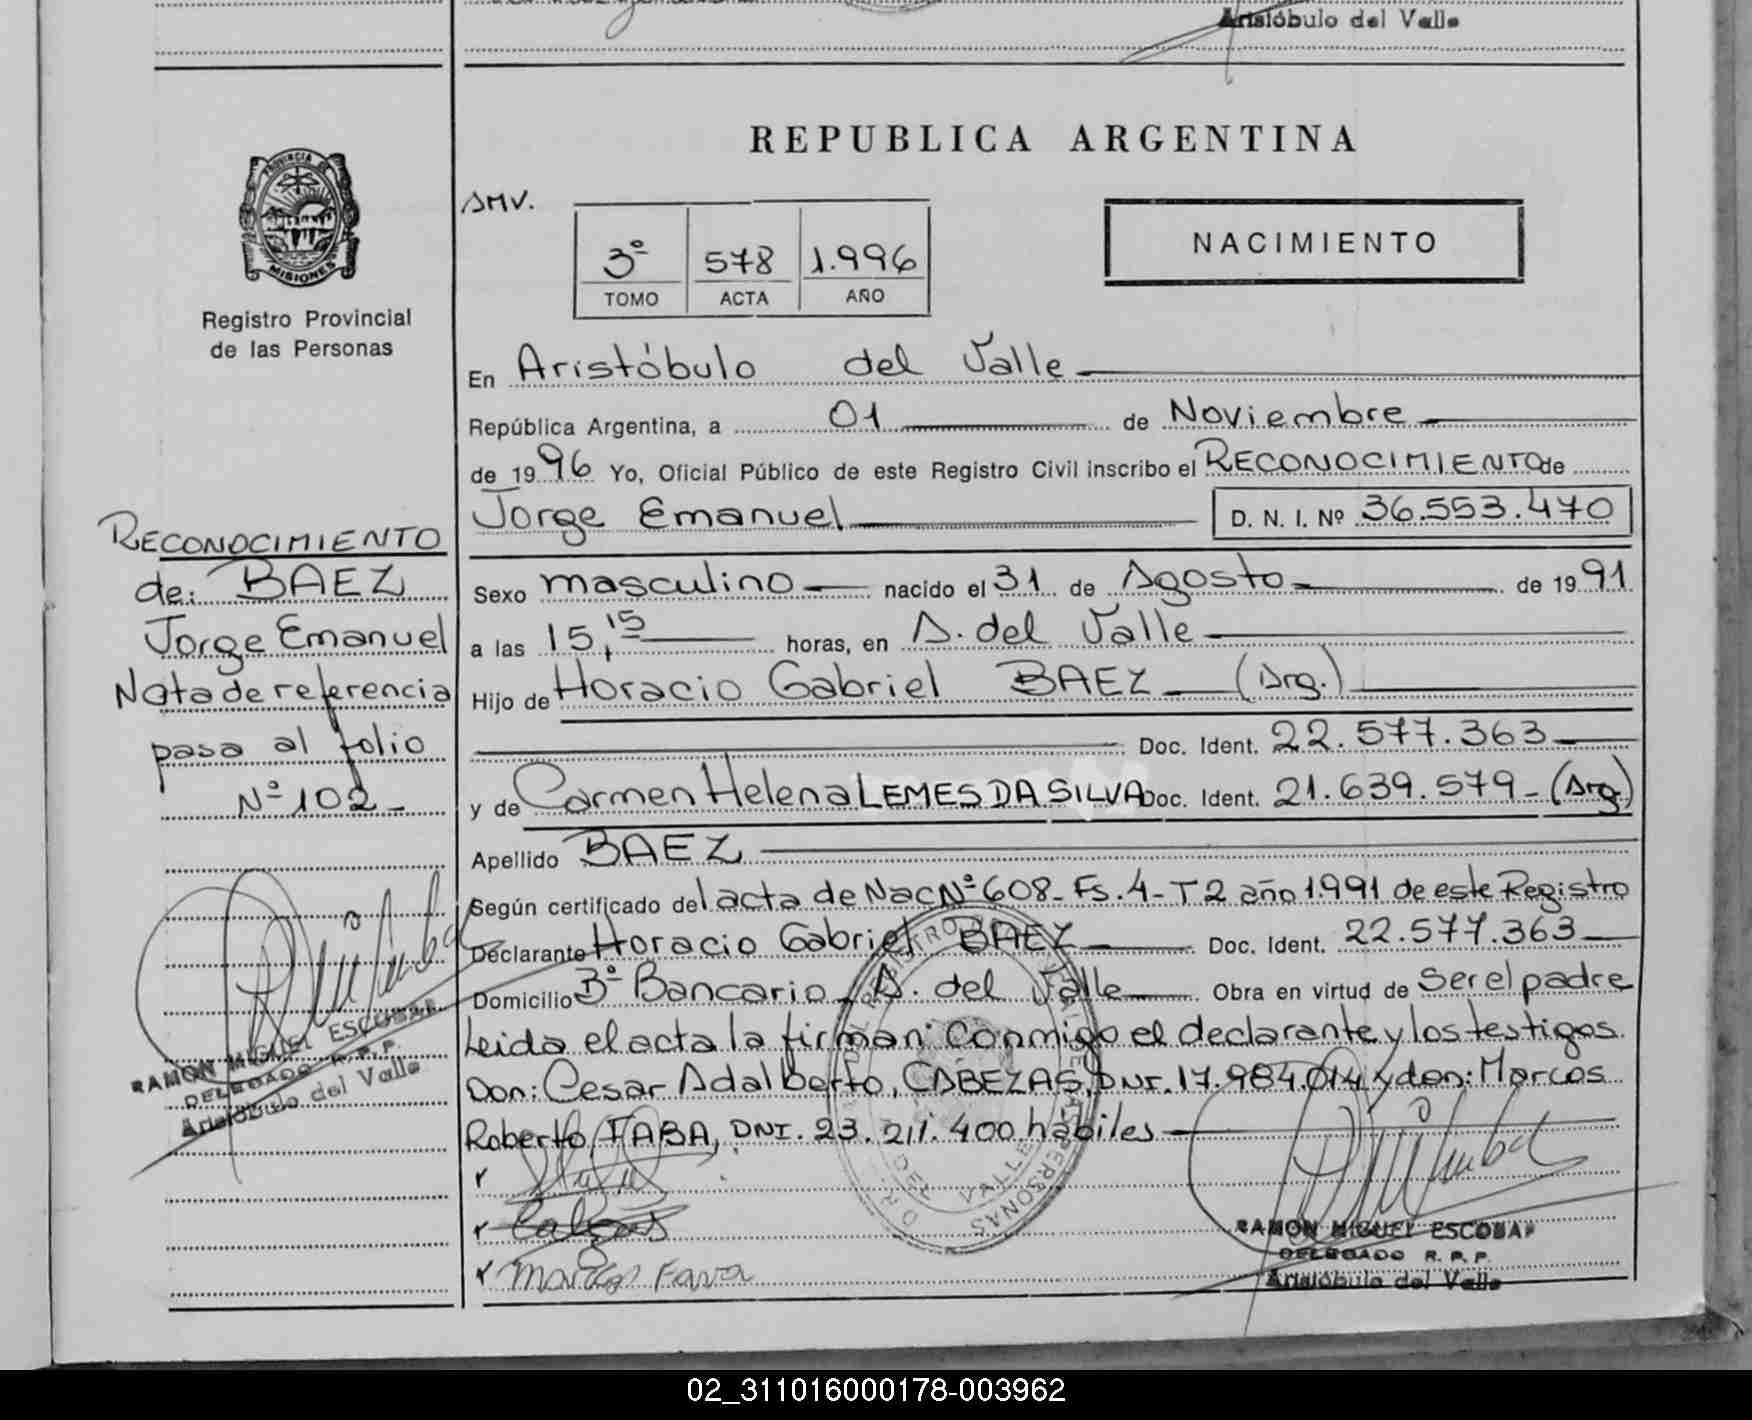 Aristóbulo del Valle
REPUBLICA ARGENTINA
PROVINCIA DE
MISIONES
Registro Provincial
de las Personas
AMV.
3º 578 1.996
TOMO ACTA AÑO
NACIMIENTO
En Aristóbulo del Valle
República Argentina, a 01 de Noviembre
de 1996 Yo, Oficial Público de este Registro Civil inscribo el RECONOCIMIENTO de
Jorge Emanuel D. N. I. Nº 36.553.470
Sexo masculino nacido el 31 de Agosto de 1991
a las 15,15 horas, en A. del Valle
Hijo de Horacio Gabriel BAEZ (Arg.)
Doc. Ident. 22.577.363
y de Carmen Helena LEMES DA SILVA Doc. Ident. 21.639.579 - (Arg.)
Apellido BAEZ
Según certificado del acta de Nac Nº 608 - Fs. 4 - T 2 año 1.991 de este Registro
Declarante Horacio Gabriel BAEZ Doc. Ident. 22.577.363
Domicilio Bº Bancario, A. del Valle Obra en virtud de Ser el padre
Leida el acta la firman: conmigo el declarante y los testigos
Don: Cesar Adalberto, CABEZAS, DNI. 17.984.014 y don: Marcos
Roberto, FABA, DNI. 23.211.400 hábiles
Marcos Fava
RAMON MIGUEL ESCOBAR
DELEGADO R. P. P.
Aristóbulo del Valle
RECONOCIMIENTO
de: BAEZ
Jorge Emanuel
Nota de referencia
pasa al folio
Nº 102 -
RAMON MIGUEL ESCOBAR
DELEGADO R. P. P.
Aristóbulo del Valle
02_311016000178-003962